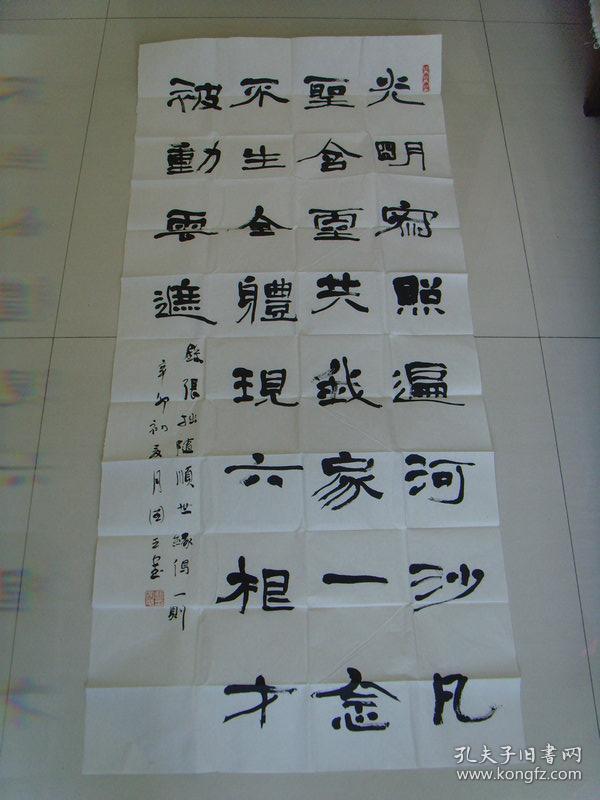 光明寂照遍河沙凡
聖含靈共我家一念
不生全體現六根才
被動雲遮
錄張拙隨順世緣偈一則
辛卯初夏月國書
孔夫子旧書网
www.kongfz.com